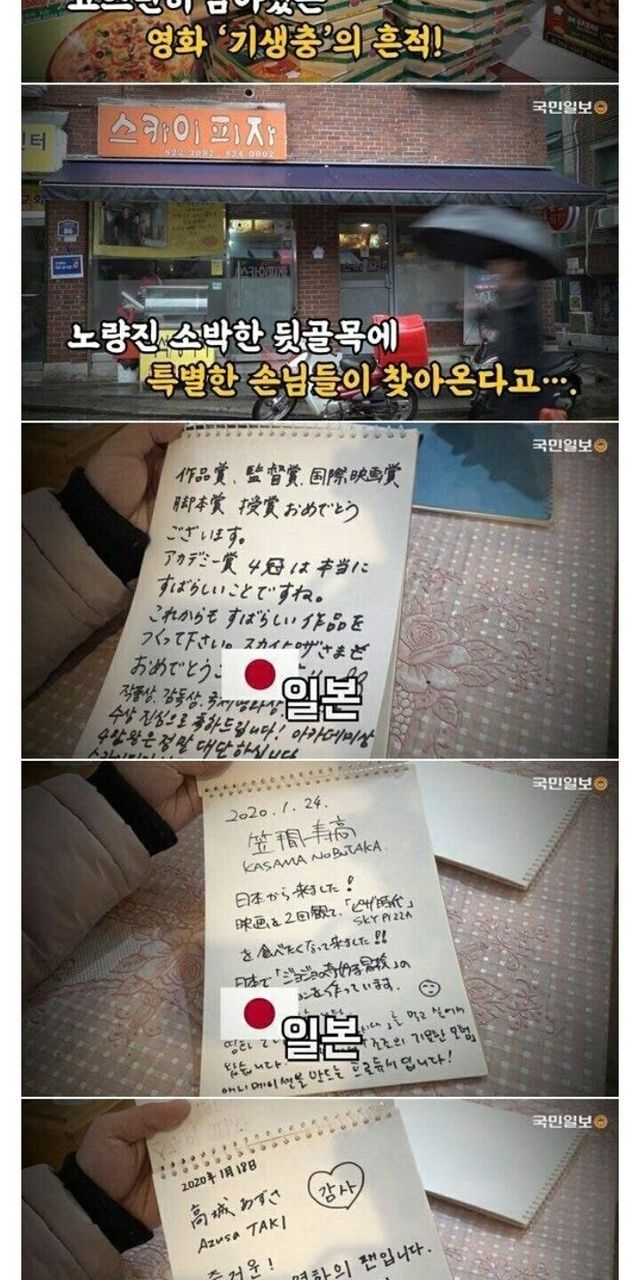 영화 '기생충'의 흔적!
국민일보
스카이피자
822 3082 824 0002
86
노량진 소박한 뒷골목에
특별한 손님들이 찾아온다고….
국민일보
作品賞、監督賞、国際映画賞
脚本賞 授賞おめでとう
ございます。
アカデミー賞 4冠は本当に
すばらしいことですね。
これからもすばらしい作品を
つくって下さい。スカイピザさまも
おめでとう
일본
작품상, 감독상,
수상 진심으로 축하드립니다! 아카데미상
4관왕은 정말 대단하십니다
국민일보
2020.1.24.
KASAMA NOBUTAKA
日本から来ました!
映画を2回観て、「ピザ時代」
SKY PIZZA
を食べたくなって来ました!!
日本で「ジョジョの奇妙な冒険」の
を作っています。
일본
를 먹고 싶어서
죠죠의 기묘한 모험
애니메이션을 만드는 프로듀서입니다!
국민일보
2020年1月18日
高城あずさ
감사
Azusa TAKI
즐거운!
영화의 팬입니다.